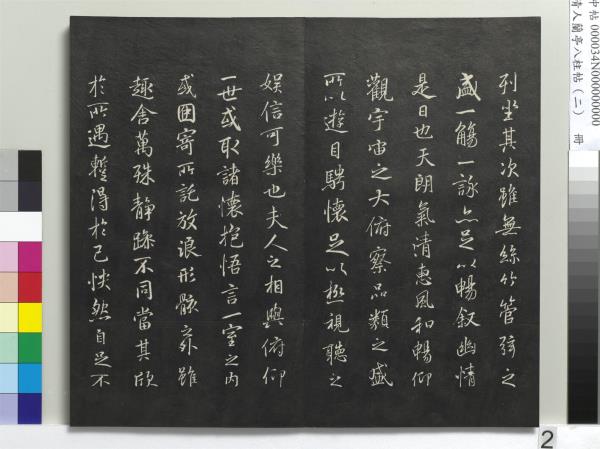 中帖 000034N000000000
清人蘭亭八柱帖（二） 冊
列坐其次雖無絲竹管弦之
盛一觴一詠亦足以暢叙幽情
是日也天朗氣清惠風和暢仰
觀宇宙之大俯察品類之盛
所以遊目騁懷足以極視聽之
娛信可樂也夫人之相與俯仰
一世或取諸懷抱悟言一室之内
或因寄所託放浪形骸之外雖
趣舍萬殊靜躁不同當其欣
於所遇蹔得於己怏然自足不
2